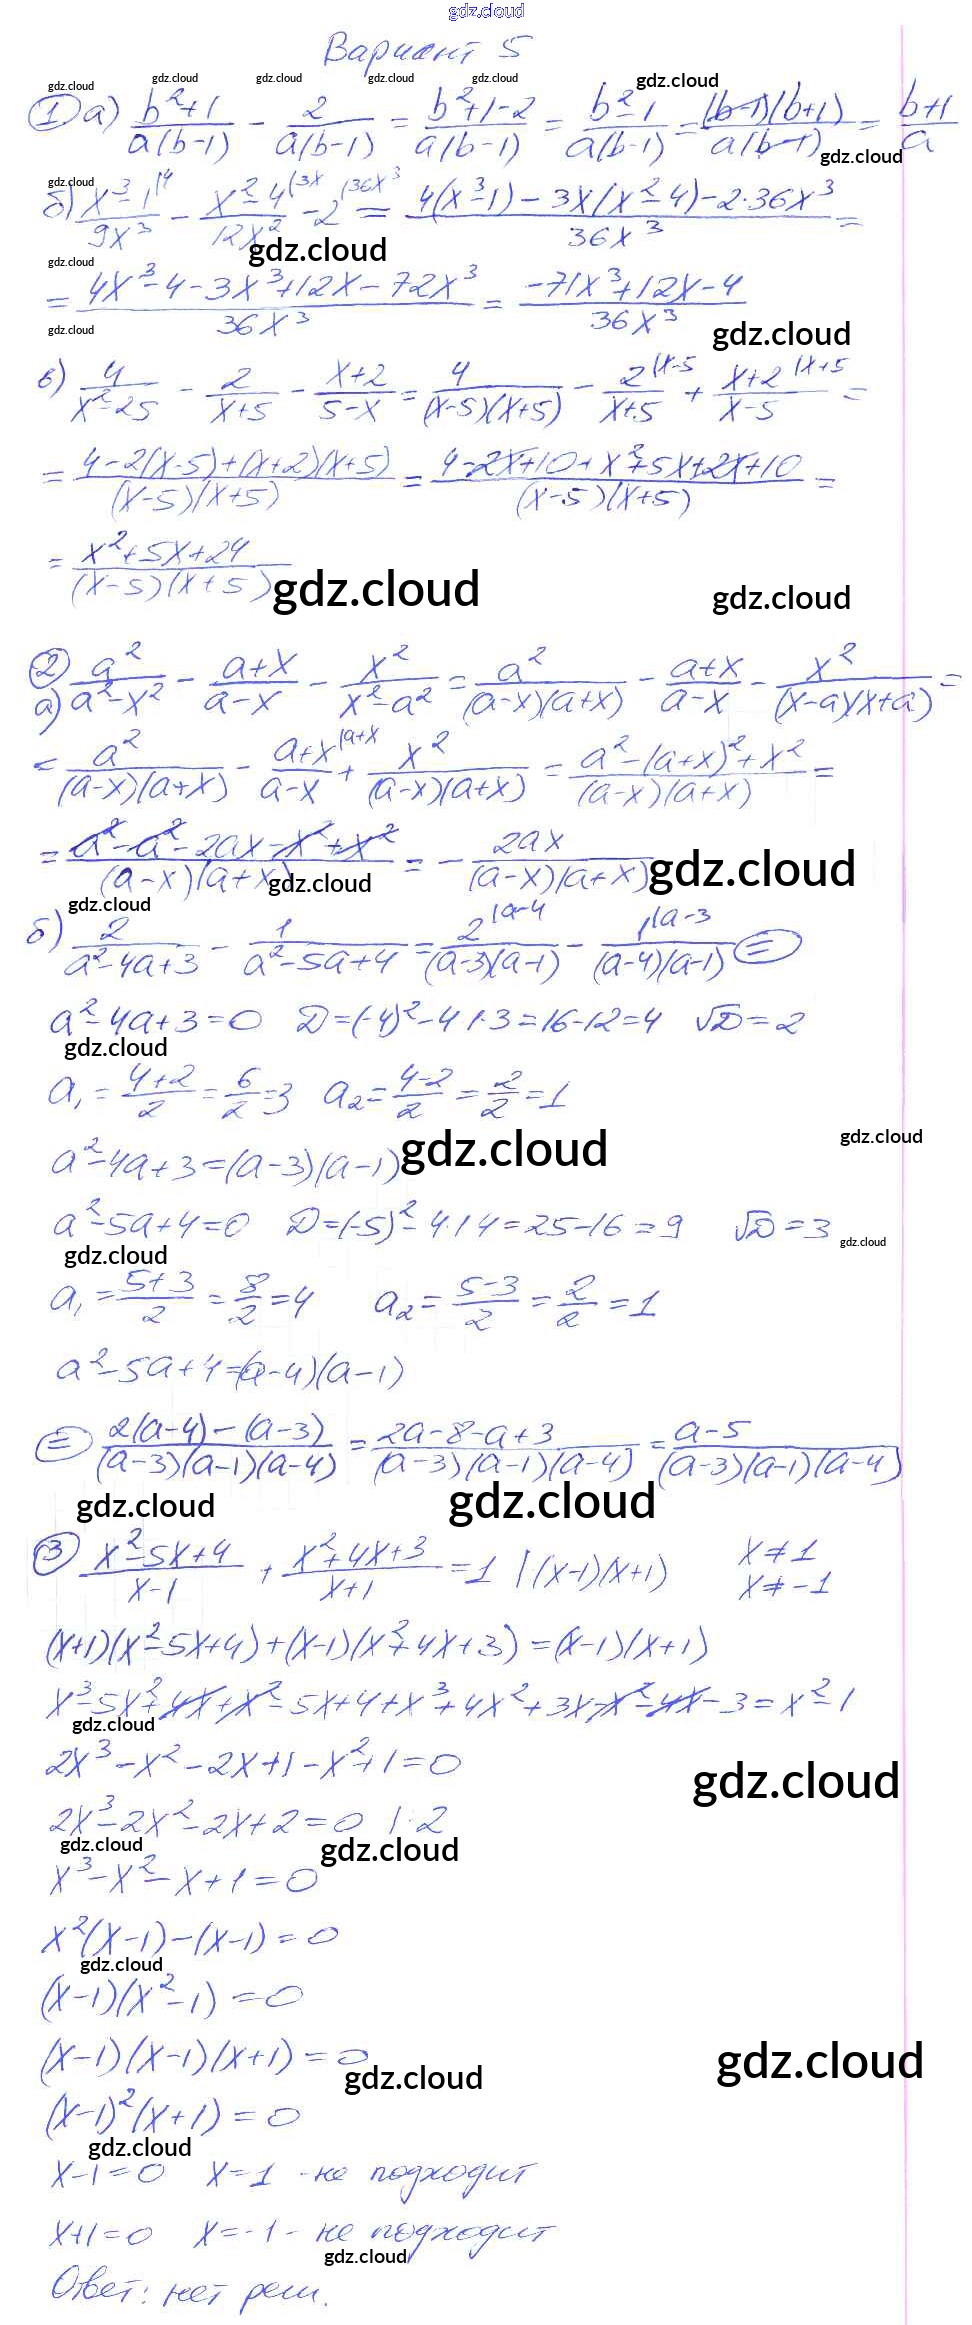 gdz.cloud
Вариант 5
gdz.cloud gdz.cloud gdz.cloud gdz.cloud gdz.cloud gdz.cloud
① а) (b²+1)/(a(b-1)) - 2/(a(b-1)) = (b²+1-2)/(a(b-1)) = (b²-1)/(a(b-1)) = ((b-1)(b+1))/(a(b-1)) = (b+1)/a
gdz.cloud
gdz.cloud
б) (x³-1)/(9x³) |4 - (x²-4)/(12x²) |3x - 2 |36x³ = (4(x³-1) - 3x(x²-4) - 2·36x³)/(36x³) =
gdz.cloud
gdz.cloud
= (4x³-4-3x³+12x-72x³)/(36x³) = (-71x³+12x-4)/(36x³)
gdz.cloud gdz.cloud
в) 4/(x²-25) - 2/(x+5) - (x+2)/(5-x) = 4/((x-5)(x+5)) - 2/(x+5) |x-5 + (x+2)/(x-5) |x+5 =
= (4-2(x-5)+(x+2)(x+5))/((x-5)(x+5)) = (4-2x+10+x²+5x+2x+10)/((x-5)(x+5)) =
= (x²+5x+24)/((x-5)(x+5))
gdz.cloud gdz.cloud
② а) a²/(a²-x²) - (a+x)/(a-x) - x²/(x²-a²) = a²/((a-x)(a+x)) - (a+x)/(a-x) - x²/((x-a)(x+a)) =
= a²/((a-x)(a+x)) - (a+x)/(a-x) |a+x + x²/((a-x)(a+x)) = (a²-(a+x)²+x²)/((a-x)(a+x)) =
= (a²-a²-2ax-x²+x²)/((a-x)(a+x)) = - 2ax/((a-x)(a+x))
gdz.cloud gdz.cloud
gdz.cloud
б) 2/(a²-4a+3) - 1/(a²-5a+4) = 2/((a-3)(a-1)) |a-4 - 1/((a-4)(a-1)) |a-3 ⊜
a²-4a+3=0 D=(-4)²-4·1·3=16-12=4 √D=2
gdz.cloud
a₁ = (4+2)/2 = 6/2 = 3 a₂ = (4-2)/2 = 2/2 = 1
a²-4a+3=(a-3)(a-1)
gdz.cloud gdz.cloud
a²-5a+4=0 D=(-5)²-4·1·4=25-16=9 √D=3
gdz.cloud gdz.cloud
a₁ = (5+3)/2 = 8/2 = 4 a₂ = (5-3)/2 = 2/2 = 1
a²-5a+4=(a-4)(a-1)
⊜ (2(a-4)-(a-3))/((a-3)(a-1)(a-4)) = (2a-8-a+3)/((a-3)(a-1)(a-4)) = (a-5)/((a-3)(a-1)(a-4))
gdz.cloud gdz.cloud
③ (x²-5x+4)/(x-1) + (x²+4x+3)/(x+1) = 1 |·(x-1)(x+1) x≠1
x≠-1
(x+1)(x²-5x+4)+(x-1)(x²+4x+3)=(x-1)(x+1)
x³-5x²+4x+x²-5x+4+x³+4x²+3x-x²-4x-3=x²-1
gdz.cloud
2x³-x²-2x+1-x²+1=0
gdz.cloud
2x³-2x²-2x+2=0 |:2
gdz.cloud gdz.cloud
x³-x²-x+1=0
x²(x-1)-(x-1)=0
gdz.cloud
(x-1)(x²-1)=0
(x-1)(x-1)(x+1)=0
gdz.cloud gdz.cloud
(x-1)²(x+1)=0
gdz.cloud
x-1=0 x=1 - не подходит
x+1=0 x=-1 - не подходит
gdz.cloud
Ответ: нет реш.